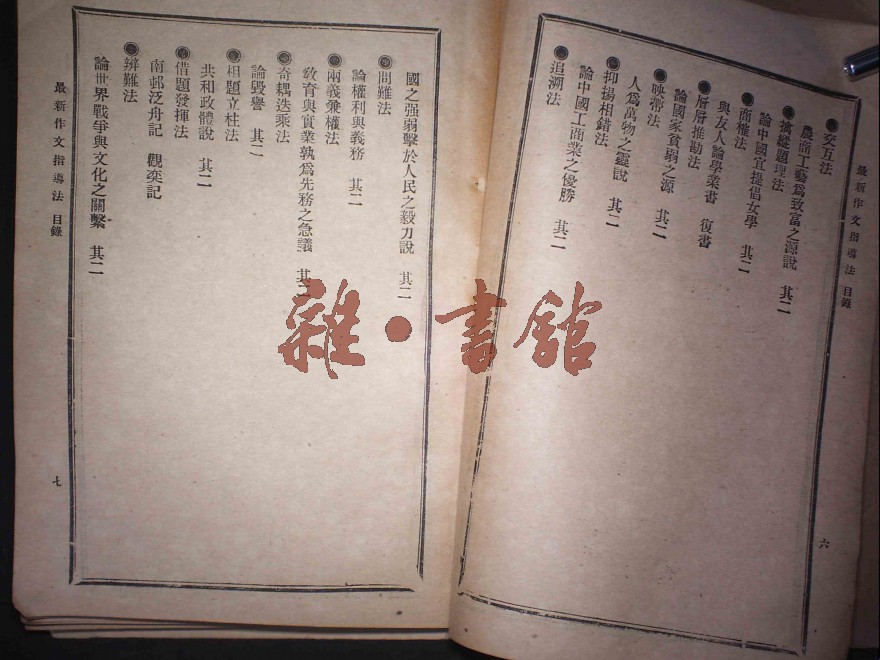 最新作文指導法 目錄
交互法
農商工藝爲致富之源說 其二
擒縱題理法
論中國宜提倡女學 其二
商榷法
與友人論學業書 復書
層層推勘法
論國家貧弱之源 其二
映襯法
人爲萬物之靈說 其二
抑揚相錯法
論中國工商業之優勝 其二
追溯法
六
國之强弱繫於人民之毅力說 其二
問難法
論權利與義務 其二
兩義兼權法
敎育與實業孰爲先務之急議 其二
奇耦迭乘法
論毀譽 其二
相題立柱法
共和政體說 其二
借題發揮法
南邨泛舟記 觀奕記
辨難法
論世界戰爭與文化之關繫 其二
最新作文指導法 目錄
七
雜·書館